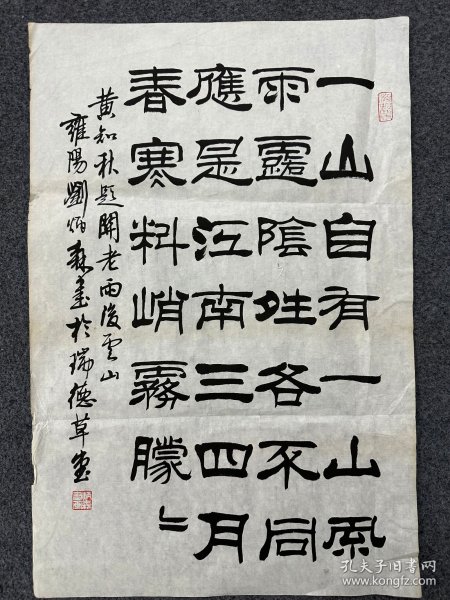 一山自有一山風
雨露陰夝各不同
應是江南三四月
春寒料峭霧朦〻
黄知秋題関老雨後雲山
雍陽劉炳森書於瑞德草堂
孔夫子旧书网
www.kongfz.com